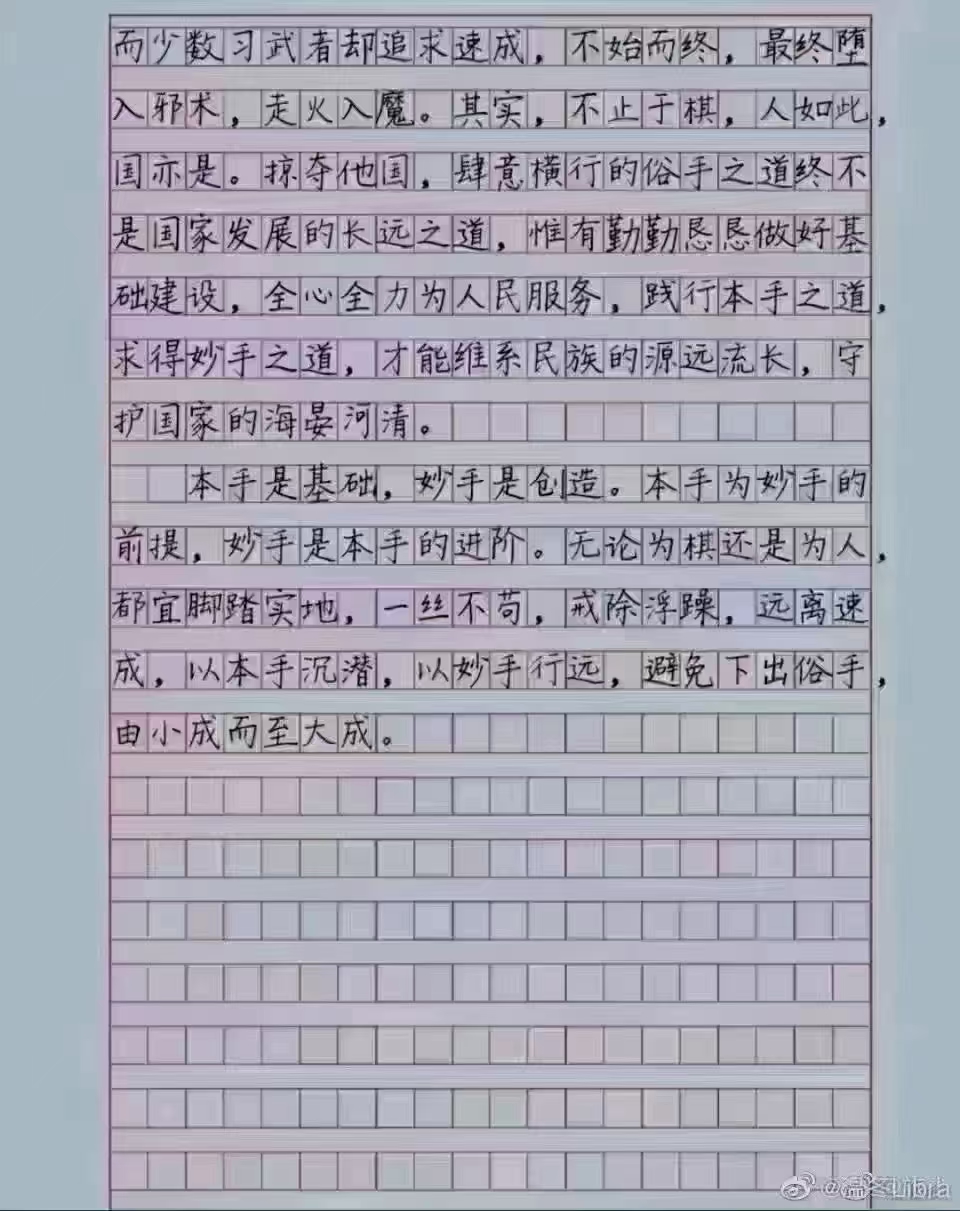 而少数习武者却追求速成，不始而终，最终堕
入邪术，走火入魔。其实，不止于棋，人如此，
国亦是。掠夺他国，肆意横行的俗手之道终不
是国家发展的长远之道，惟有勤勤恳恳做好基
础建设，全心全力为人民服务，践行本手之道，
求得妙手之道，才能维系民族的源远流长，守
护国家的海晏河清。
本手是基础，妙手是创造。本手为妙手的
前提，妙手是本手的进阶。无论为棋还是为人，
都宜脚踏实地，一丝不苟，戒除浮躁，远离速
成，以本手沉潜，以妙手行远，避免下出俗手，
由小成而至大成。
Libra